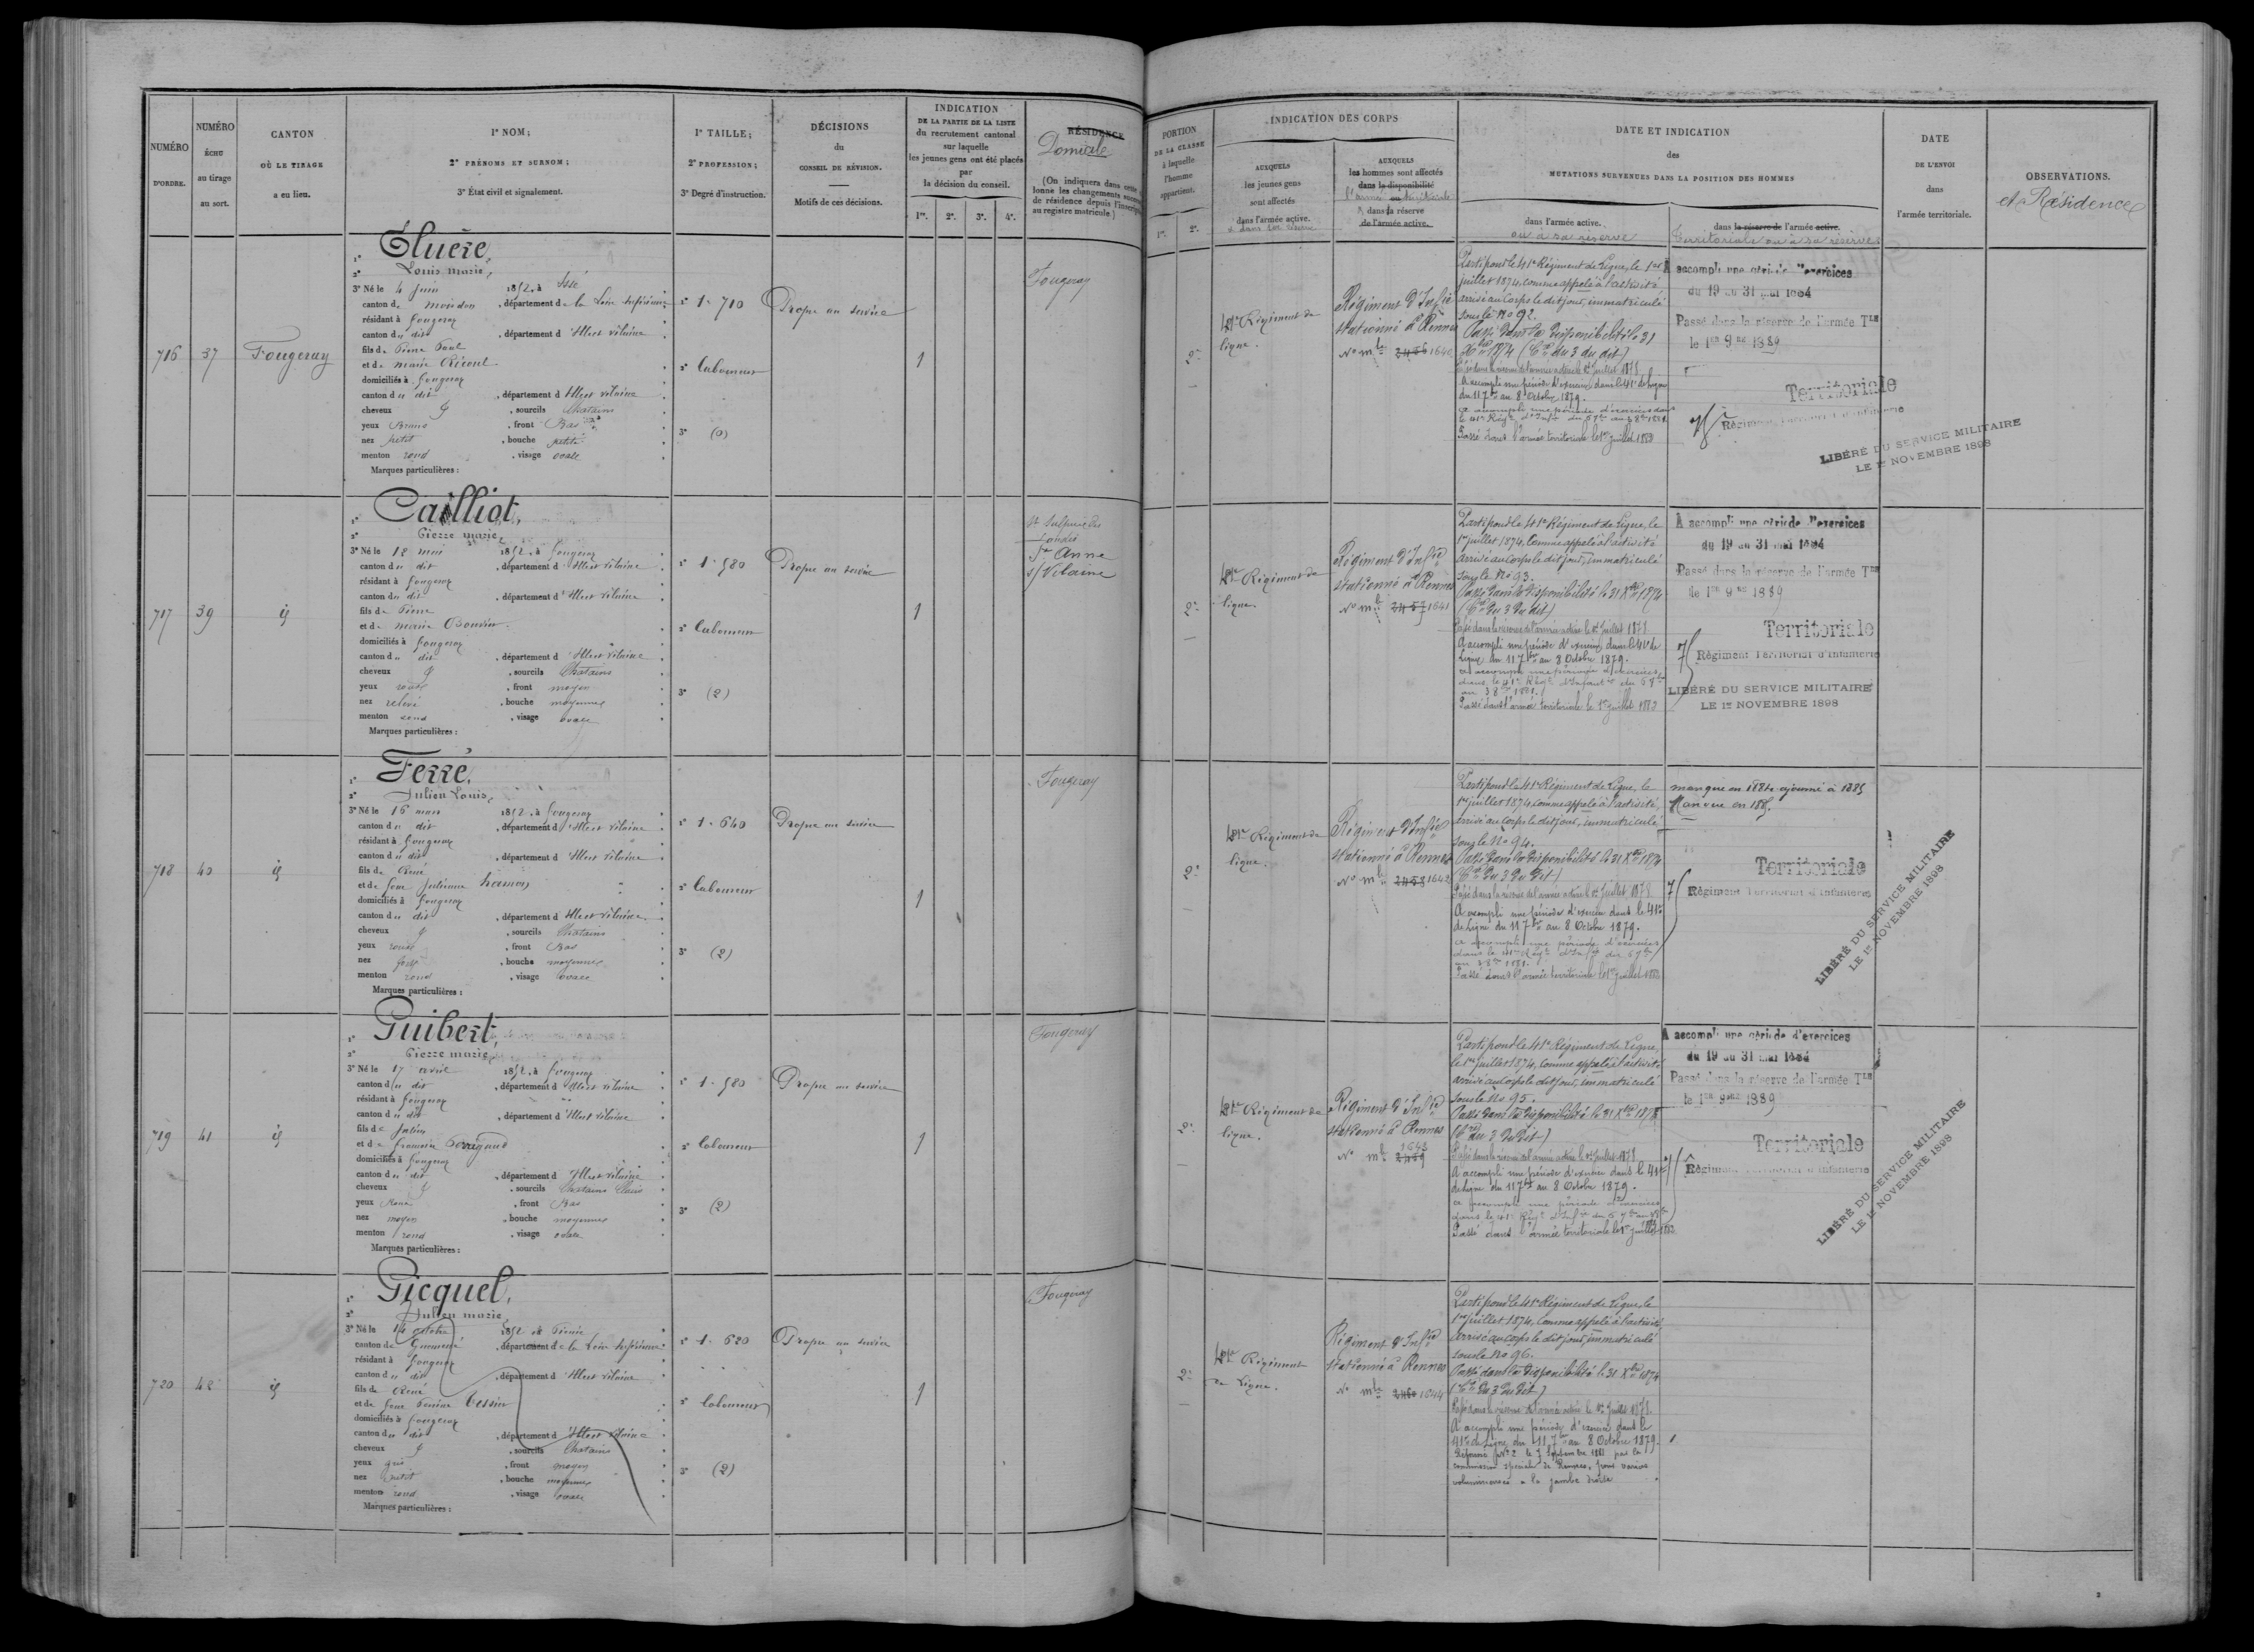 NUMÉRO
D'ORDRE.
NUMÉRO
ÉCHU
au tirage
au sort.
CANTON
OÙ LE TIRAGE
a eu lieu.
1º NOM;
2º PRÉNOMS ET SURNOM;
3º État civil et signalement.
1º TAILLE;
2º PROFESSION;
3º Degré d'instruction.
DÉCISIONS
du
CONSEIL DE RÉVISION.
Motifs de ces décisions.
INDICATION
DE LA PARTIE DE LA LISTE
du recrutement cantonal
sur laquelle
les jeunes gens ont été placés
par
la décision du conseil.
1re. 2e. 3e. 4e.
RÉSIDENCE
Domicile
(On indiquera dans cette
lonne les changements
de résidence depuis l'inscription
au registre matricule)
PORTION
DE LA CLASSE
à laquelle
l'homme
appartient.
1re. 2e.
INDICATION DES CORPS
AUXQUELS
les jeunes gens
sont affectés
dans l'armée active.
AUXQUELS
les hommes sont affectés
dans la disponibilité
& dans la réserve
de l'armée active.
DATE ET INDICATION
des
MUTATIONS SURVENUES DANS LA POSITION DES HOMMES
dans l'armée active.
ou à sa réserve
dans la réserve de l'armée active.
Territoriale ou à sa réserve
DATE
DE L'ENVOI
dans
l'armée territoriale.
OBSERVATIONS.
et Résidence
716 37 Fougeray
1º Eluère,
2º Louis marie,
3º Né le 4 juin 1852, à Issé
canton de moisdon, département de la Loire Inférieure
résidant à fougeray
canton du dit, département d'Ille et vilaine
fils de Pierre Paul
et de marie
domiciliés à fougeray
canton du dit, département d'Ille et vilaine
cheveux, sourcils Chatains
yeux Bruns, front Bas
nez petit, bouche petite
menton rond, visage ovale
Marques particulières :
1º 1.710
2º Laboureur
3º (0)
Propre au service
1
Fougeray
2e
41e Régiment de
ligne.
Régiment d'Infie
stationné à Rennes
No mle 2456 1640
Parti pour le 41e Régiment de Ligne, le 1er
juillet 1874, comme appelé à l'activité,
arrivé au Corps le dit jour, immatriculé
sous le No 92.
Passé dans la disponibilité le 31
Xbre 1874 (Cre du 3 du dit)
Passé dans la réserve de l'armée active le 1er Juillet 1878
A accompli une période d'exercices dans le 41e de ligne
du 11 7bre au 8 Octobre 1879.
Passé dans l'armée territoriale le 1er juillet 1883
A accompli une période d'exercices
du 19 au 31 mai 1884
Passé dans la réserve de l'armée Tle
le 1er 9bre 1889
Territoriale
75e Régiment Territorial d'Infanterie
LIBÉRÉ DU SERVICE MILITAIRE
LE 1er NOVEMBRE 1898
717 39 id
1º Cailliot,
2º Pierre marie,
3º Né le 12 mai 1852, à fougeray
canton du dit, département d'Ille et vilaine
résidant à fougeray
canton du dit, département d'Ille et vilaine
fils de Pierre
et de marie
domiciliés à fougeray
canton du dit, département d'Ille et vilaine
cheveux, sourcils Chatains
yeux roux, front moyen
nez relevé, bouche moyenne
menton rond, visage ovale
Marques particulières :
1º 1.580
2º Laboureur
3º (2)
Propre au service
1
St Sulpice des
Landes
Ste Anne
s/ Vilaine
2e
41e Régiment de
ligne.
Régiment d'Infie
stationné à Rennes
No mle 2457 1641
Parti pour le 41e Régiment de Ligne, le
1er juillet 1874, comme appelé à l'activité
arrivé au Corps le dit jour, immatriculé
sous le No 93.
Passé dans la disponibilité le 31 Xbre 1874
(Cre du 3 du dit)
Passé dans la réserve de l'armée active le 1er Juillet 1878
A accompli une période d'exercices dans le 41e de
Ligne du 11 7bre au 8 Octobre 1879.
Passé dans l'armée territoriale le 1er juillet 1883
A accompli une période d'exercices
du 19 au 31 mai 1884
Passé dans la réserve de l'armée Tle
le 1er 9bre 1889
Territoriale
Régiment Territorial d'Infanterie
LIBÉRÉ DU SERVICE MILITAIRE
LE 1er NOVEMBRE 1898
718 40 id
1º Ferré,
2º Julien Louis,
3º Né le 16 mars 1852, à fougeray
canton du dit, département d'Ille et vilaine
résidant à fougeray
canton du dit, département d'Ille et vilaine
fils de René
et de feue Julienne hamon
domiciliés à fougeray
canton du dit, département d'Ille et vilaine
cheveux, sourcils Chatains
yeux roux, front Bas
nez, bouche moyenne
menton rond, visage ovale
Marques particulières :
1º 1.640
2º Laboureur
3º (2)
Propre au service
1
Fougeray
2e
41e Régiment de
ligne.
Régiment d'Infie
stationné à Rennes
No mle 2458 1642
Parti pour le 41e Régiment de Ligne, le
1er juillet 1874, comme appelé à l'activité,
arrivé au Corps le dit jour, immatriculé
sous le No 94.
Passé dans la disponibilité le 31 Xbre 1874
(Cre du 3 du dit)
Passé dans la réserve de l'armée active le 1er Juillet 1878
A accompli une période d'exercices dans le 41e
de Ligne du 11 7bre au 8 Octobre 1879.
Passé dans l'armée territoriale le 1er juillet 1883
manque en 1884 ajourné à 1885
Manque en 1885.
Territoriale
Régiment Territorial d'Infanterie
LIBÉRÉ DU SERVICE MILITAIRE
LE 1er NOVEMBRE 1898
719 41 id
1º Guibert,
2º Pierre marie,
3º Né le 17 avril 1852, à fougeray
canton du dit, département d'Ille et vilaine
résidant à fougeray
canton du dit, département d'Ille et vilaine
fils de Julien
et de francoise
domiciliés à fougeray
canton du dit, département d'Ille et vilaine
cheveux, sourcils Chatains Clairs
yeux, front Bas
nez moyen, bouche moyenne
menton rond, visage ovale
Marques particulières :
1º 1.580
2º Laboureur
3º (2)
Propre au service
1
Fougeray
2e
41e Régiment de
ligne.
Régiment d'Infie
stationné à Rennes
1643
No mle 2459
Parti pour le 41e Régiment de Ligne,
le 1er juillet 1874, comme appelé à l'activité
arrivé au Corps le dit jour, immatriculé
sous le No 95.
Passé dans la disponibilité le 31 Xbre
(Cre du 3 du dit)
Passé dans la réserve de l'armée active le 1er Juillet 1878
A accompli une période d'exercices dans le 41e
de Ligne du 11 7bre au 8 Octobre 1879.
Passé dans l'armée territoriale le 1er juillet 1883
A accompli une période d'exercices
du 19 au 31 mai 1884
Passé dans la réserve de l'armée Tle
le 1er 9bre 1889
Territoriale
Régiment Territorial d'Infanterie
LIBÉRÉ DU SERVICE MILITAIRE
LE 1er NOVEMBRE 1898
720 42 id
1º Gicquel,
2º Julien marie
3º Né le 14 octobre 1852, à Pierric
canton de Guémené, département de la Loire Inférieure
résidant à fougeray
canton du dit, département d'Ille et vilaine
fils de René
et de feue Perrine Tessier
domiciliés à fougeray
canton du dit, département d'Ille et vilaine
cheveux, sourcils Chatains
yeux gris, front moyen
nez petit, bouche moyenne
menton rond, visage ovale
Marques particulières :
1º 1.620
2º Laboureur
3º (2)
Propre au service
1
Fougeray
2e
41e Régiment
de Ligne.
Régiment d'Infie
stationné à Rennes
No mle 2460 1644
Parti pour le 41e Régiment de Ligne, le
1er juillet 1874, comme appelé à l'activité,
arrivé au corps le dit jour, immatriculé
sous le No 96.
Passé dans la disponibilité le 31 Xbre 1874
(Cre du 3 du dit)
Passé dans la réserve de l'armée active le 1er Juillet 1878.
A accompli une période d'exercices dans le
41e de Ligne du 11 7bre au 8 Octobre 1879.
Réformé No 2 le 7 Septembre 1881 par la
commission spéciale de Rennes, pour varices
volumineuses à la jambe droite